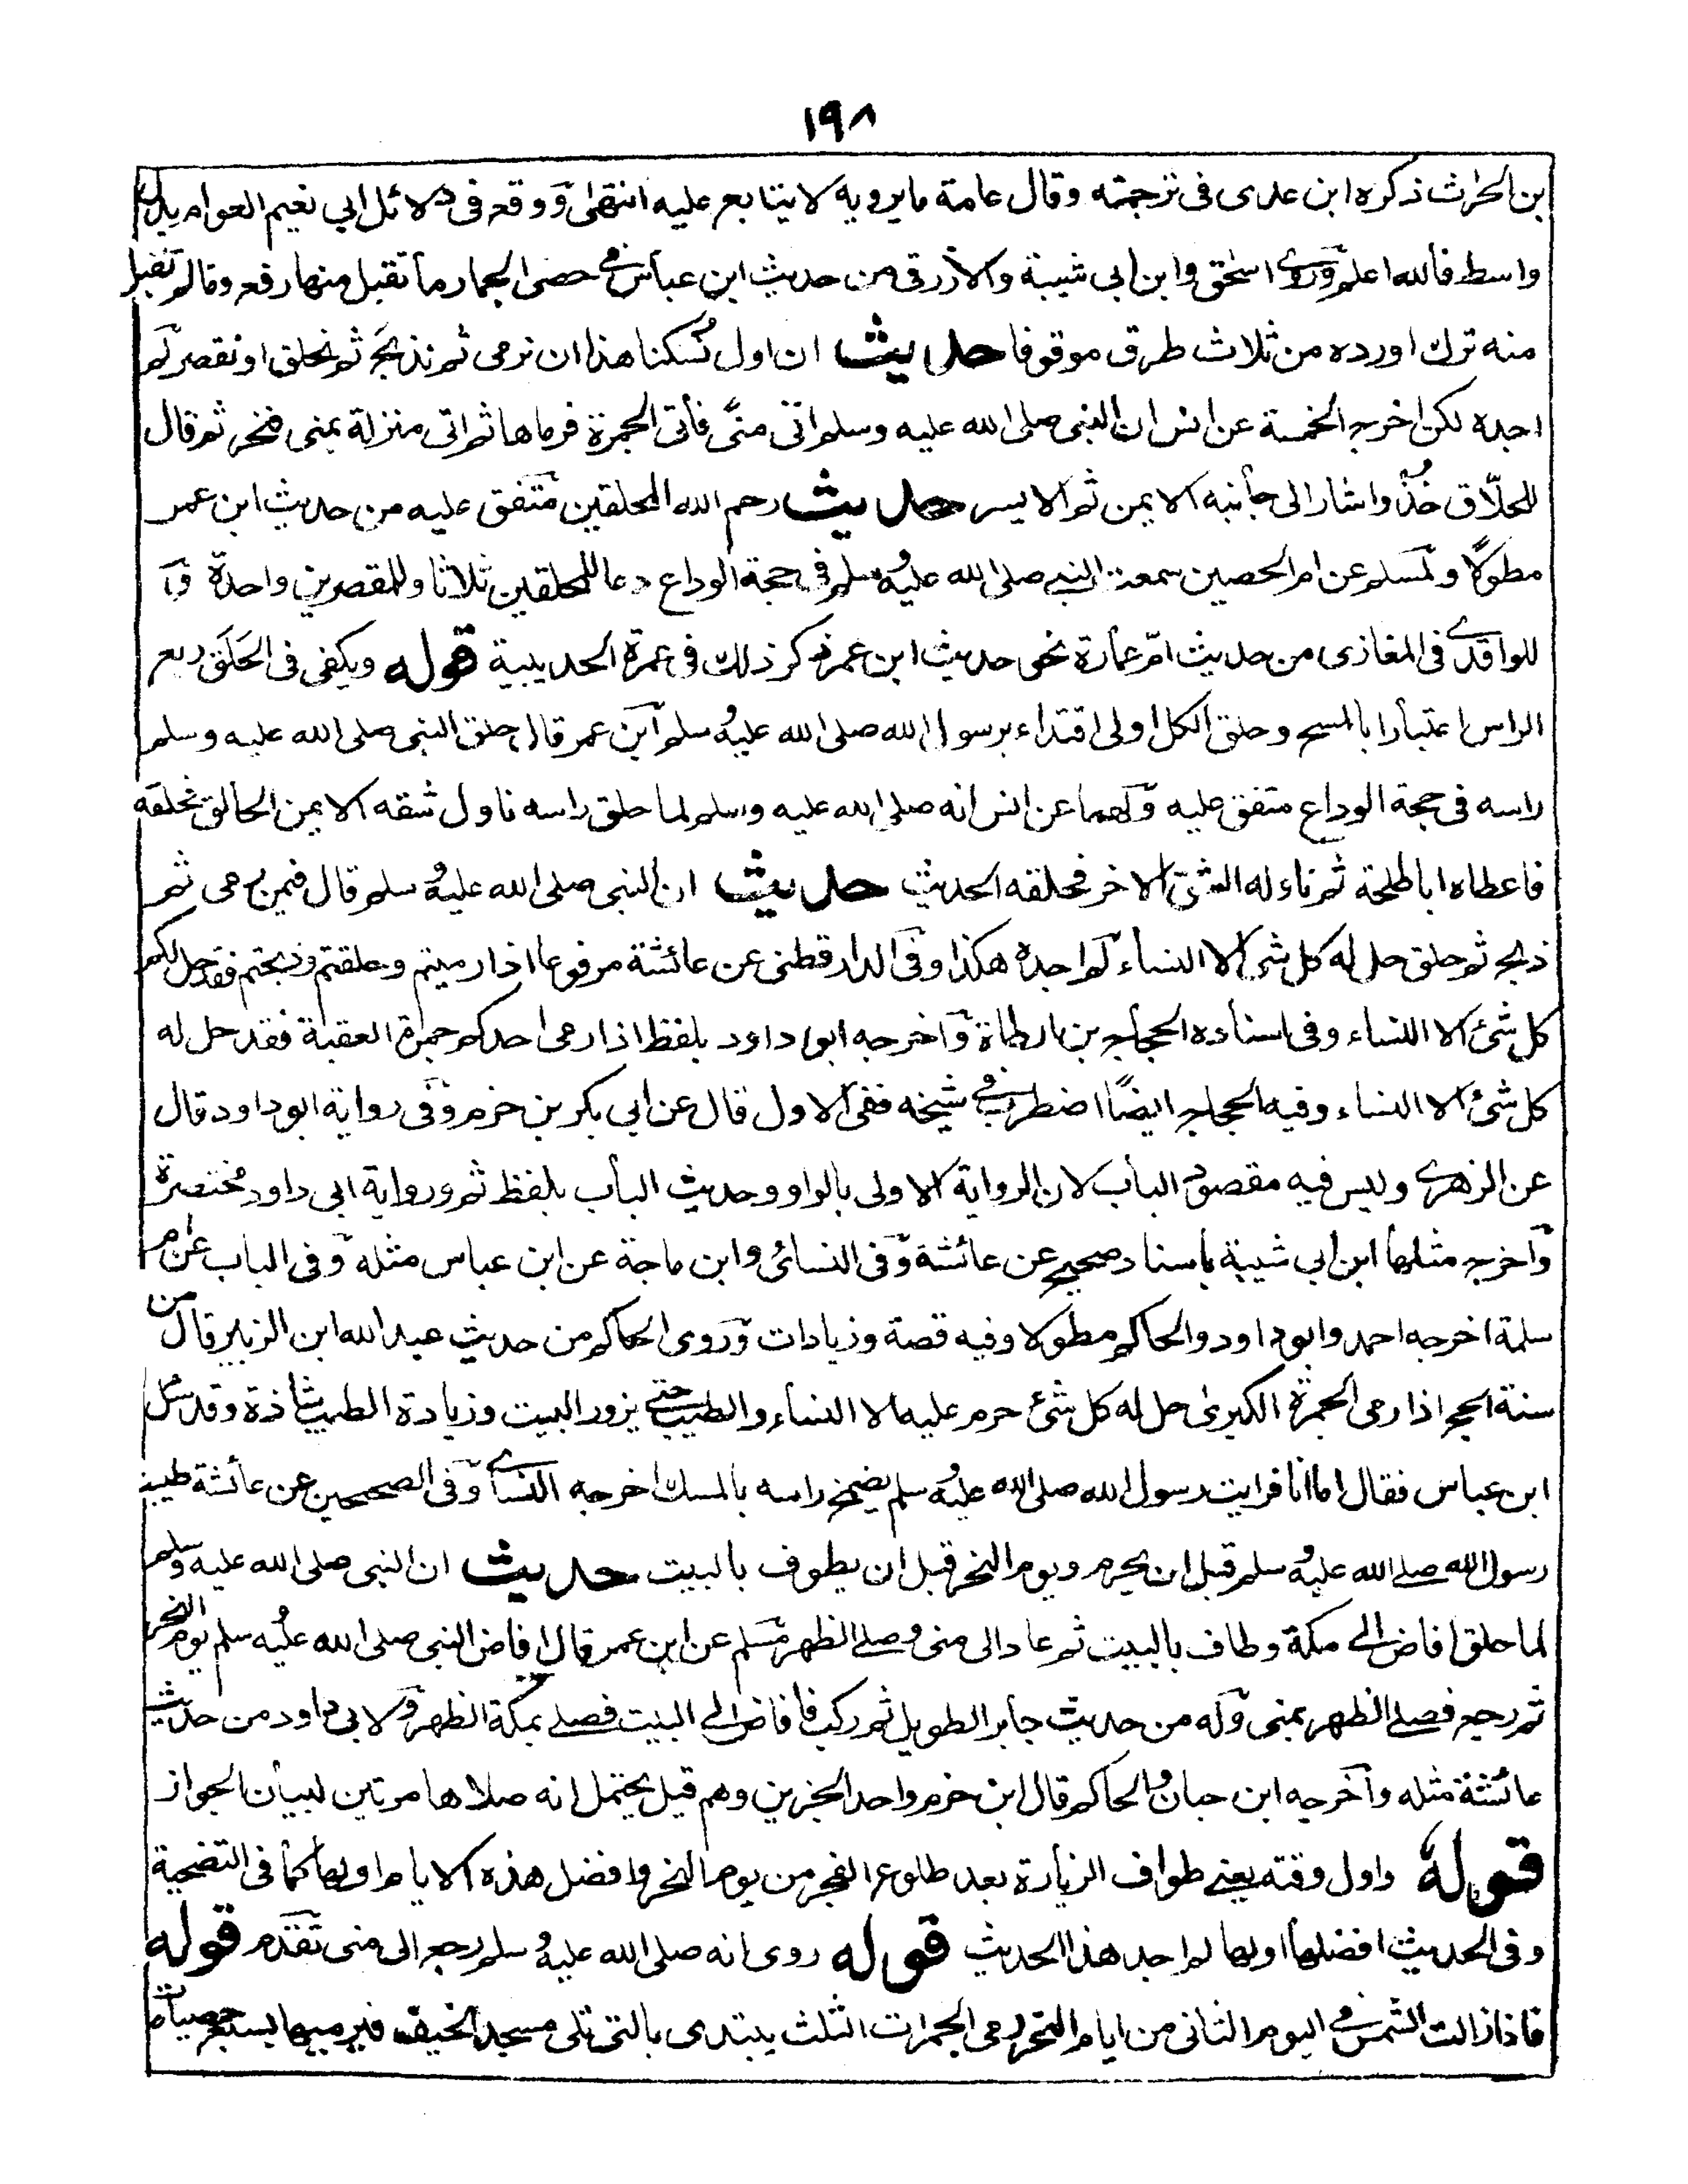 ١٩٨
بن الحرث ذكره ابن عدى فى ترجمته وقال عامة ما يرويه لا يتابع عليه انتهى ووقع فى دلائل ابي نعيم العوام بدل
واسط فالله اعلم وروى اسحق وابن ابي شيبة والازرقى من حديث ابن عباس فى حصى الجمار ما تقبل منها رفع وما لم تقبل
منه ترك اورده من ثلاث طرق موقوفا حديث ان اول نُسكنا هذا ان نرمى ثم نذبح ثم نحلق او نقصر لم
اجده لكن اخرج الخمسة عن انس ان النبى صلى الله عليه وسلم اتى منًى فأتى الجمرة فرماها ثم اتى منزلة بمنى فنحر ثم قال
للحلّاق خُذْ واشار الى جانبه الايمن ثم الايسر حديث رحم الله المحلقين متفق عليه من حديث ابن عمر
مطولا ولمسلم عن ام الحصين سمعت النبى صلى الله عليه وسلم فى حجة الوداع دعا للمحلقين ثلاثا وللمقصرين واحدة و
للواقدى فى المغازى من حديث امّ عمارة نحو حديث ابن عمر ذكر ذلك فى عمرة الحديبية قوله ويكفى فى الحلق ربع
الراس اعتبارا بالمسح وحلق الكل اولى اقتداء برسول الله صلى الله عليه وسلم ابن عمر قال حلق النبى صلى الله عليه وسلم
راسه فى حجة الوداع متفق عليه ولهما عن انس انه صلى الله عليه وسلم لما حلق راسه ناول شقه الايمن الحالق فحلقه
فاعطاه ابا طلحة ثم ناوله الشق الاخر فحلقه الحديث حديث ان النبى صلى الله عليه وسلم قال فيمن رمى ثم
ذبح ثم حلق حل له كل شئ الا النساء لم اجده هكذا وفى الدارقطنى عن عائشة مرفوعا اذا رميتم وحلقتم وذبحتم فقد حل لكم
كل شئ الا النساء وفى اسناده الحجاج بن ارطاة واخرجه ابو داود بلفظ اذا رمى احدكم جمرة العقبة فقد حل له
كل شئ الا النساء وفيه الحجاج ايضًا اضطرب فى شيخه ففى الاول قال عن ابي بكر بن حزم وفى رواية ابو داود قال
عن الزهرى وليس فيه مقصود الباب لان الرواية الاولى بالواو وحديث الباب بلفظ ثم ورواية ابى داود مختصرة
واخرج مثلها ابن ابي شيبة باسناد صحيح عن عائشة وفى النسائى وابن ماجة عن ابن عباس مثله وفى الباب عن ام
سلمة اخرجه احمد وابو داود والحاكم مطولا وفيه قصة وزيادات وروى الحاكم من حديث عبد الله ابن الزبير قال من
سنة الحج اذا رمى الجمرة الكبرى حل له كل شئ حرم عليه الا النساء والطيب حتى يزور البيت وزيادة الطيب شاذة وقد سئل
ابن عباس فقال اما انا فرايت رسول الله صلى الله عليه وسلم يضمخ راسه بالمسك اخرجه النسائى وفى الصحيحين عن عائشة طيبت
رسول الله صلى الله عليه وسلم قبل ان يحرم ويوم النحر قبل ان يطوف بالبيت حديث ان النبى صلى الله عليه وسلم
لما حلق افاض الى مكة وطاف بالبيت ثم عاد الى منى وصلى الظهر مسلم عن ابن عمر قال افاض النبى صلى الله عليه وسلم يوم النحر
ثم رجع فصلى الظهر بمنى وله من حديث جابر الطويل ثم ركب فافاض الى البيت فصلى بمكة الظهر ولابى داود من حديث
عائشة مثله واخرجه ابن حبان والحاكم قال ابن حزم واحد الخبرين وهم قيل يحتمل انه صلاها مرتين لبيان الجواز
قوله واول وقته يعنى طواف الزيارة بعد طلوع الفجر من يوم النحر وافضل هذه الايام اولها كما فى التضحية
وفى الحديث افضلها اولها لم اجد هذا الحديث قوله روى انه صلى الله عليه وسلم رجع الى منى تقدم قوله
فاذا زالت الشمس فى اليوم الثانى من ايام النحر رمى الجمرات الثلث يبتدى بالتى تلى مسجد الخيف فيرميها بسبع حصيات